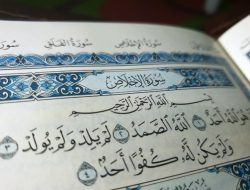 سُورَةُ الإِخْلَاصِ سُورَةُ الْفَلَقِ سُورَةُ
سُورَةُ الإِخْلَاصِ
بِسْمِ اللَّهِ الرَّحْمَٰنِ الرَّحِيمِ
هُوَ اللَّهُ أَحَدٌ ١ اللَّهُ الصَّمَدُ ٢ لَمْ يَلِدْ وَلَمْ يُولَدْ ٣
وَلَمْ يَكُن لَّهُ كُفُوًا أَحَدٌ ٤